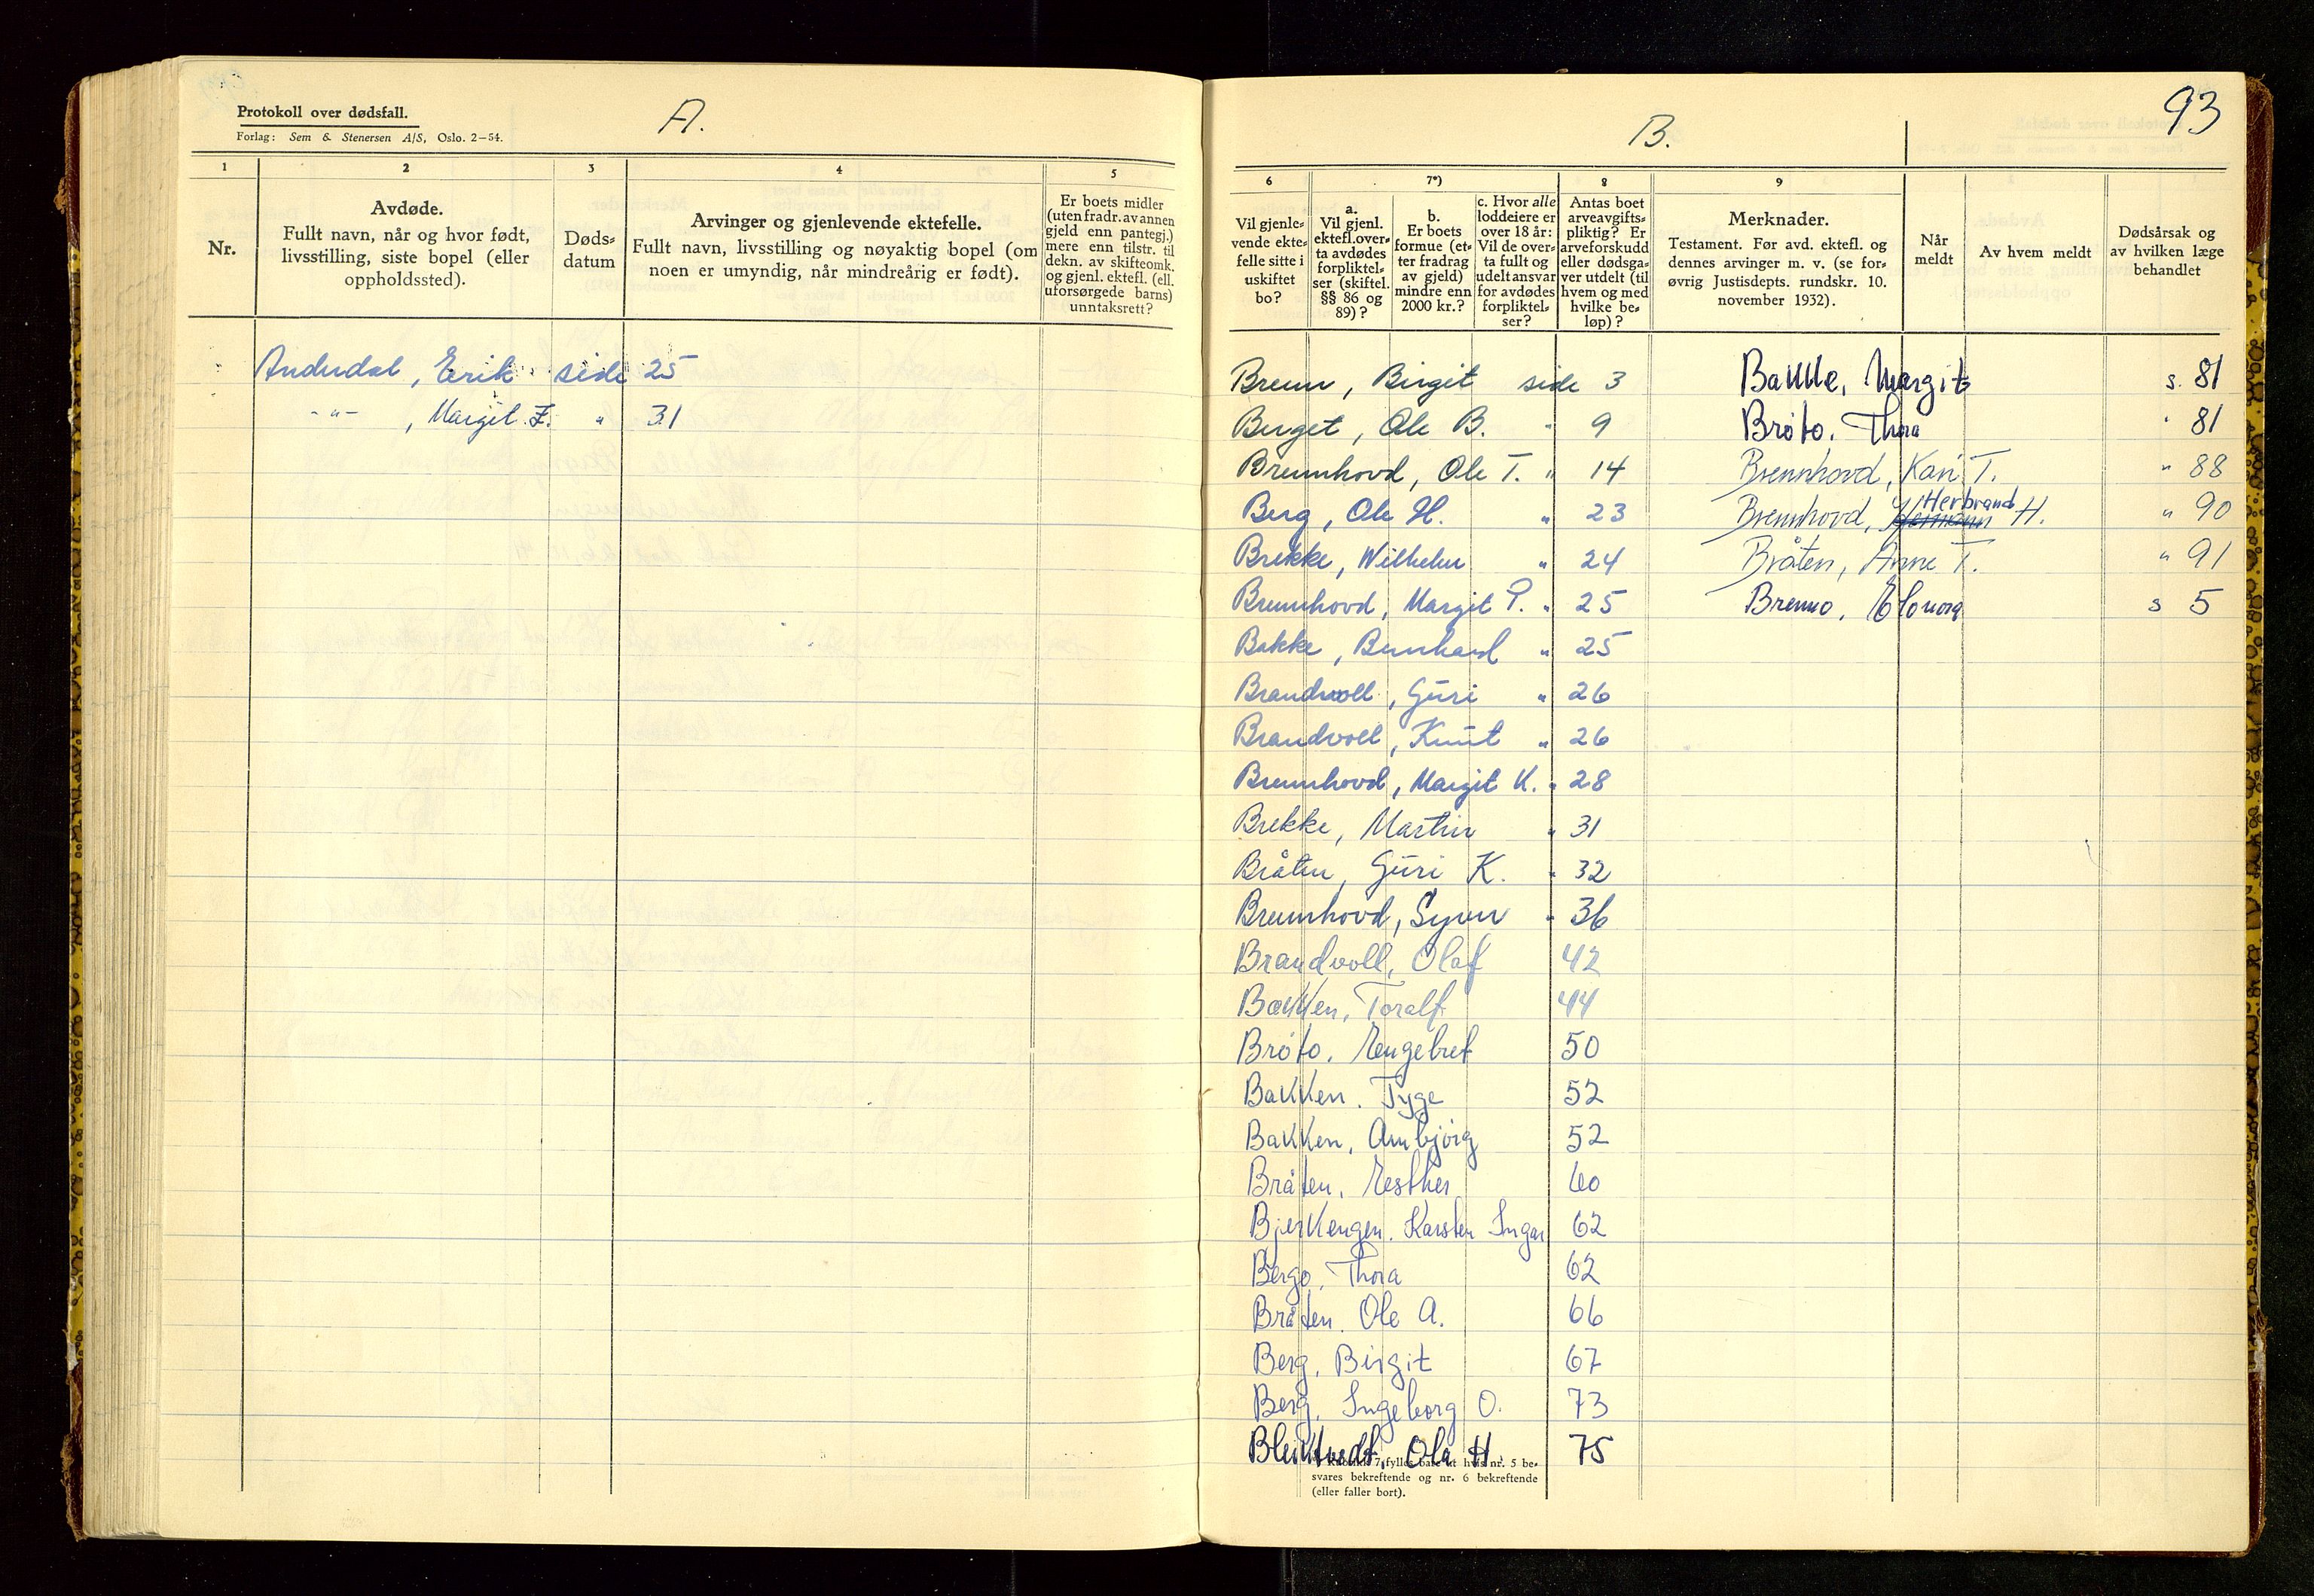 Protokoll over dødsfall.
Forlag: Sem & Stenersen A/S, Oslo. 2—54.
A.
1 2 3 4 5
Nr.
Avdøde.
Fullt navn, når og hvor født,
livsstilling, siste bopel (eller
oppholdssted).
Døds-
datum
Arvinger og gjenlevende ektefelle.
Fullt navn, livsstilling og nøyaktig bopel (om
noen er umyndig, når mindreårig er født).
Er boets midler
(uten fradr. av annen
gjeld enn pantegj.)
mere enn tilstr. til
dekn. av skifteomk.
og gjenl. ektefl. (ell.
uforsørgede barns)
unntaksrett?
Andudal, Erik side 25
-"- , Margit E. " 31
B.
93
6 7*) 8 9
Vil gjenle-
vende ekte-
felle sitte i
uskiftet
bo?
a.
Vil gjenl.
ektefl. over-
ta avdødes
forpliktel-
ser (skiftel.
§§ 86 og
89)?
b.
Er boets
formue (et-
ter fradrag
av gjeld)
mindre enn
2000 kr.?
c. Hvor alle
loddeiere er
over 18 år:
Vil de over-
ta fullt og
udelt ansvar
for avdødes
forpliktel-
ser?
Antas boet
arveavgifts-
pliktig? Er
arveforskudd
eller dødsga-
ver utdelt (til
hvem og med
hvilke be-
løp)?
Merknader.
Testament. Før avd. ektefl. og
dennes arvinger m. v. (se for-
øvrig Justisdepts. rundskr. 10.
november 1932).
Når
meldt
Av hvem meldt
Dødsårsak og
av hvilken læge
behandlet
Brenn, Birgit side 3
Berget, Ole B. " 9
Brennhovd, Ole T. " 14
Berg, Ole H. " 23
Brekke, Wilhelm " 24
Brennhovd, Margit P. " 25
Bakke, Bernhard " 25
Brandvoll, Guri " 26
Brandvoll, Knut " 26
Brennhovd, Margit K. " 28
Brekke, Martin " 31
Bråten, Guri K. " 32
Brennhovd, Syver " 36
Brandvoll, Olaf 42
Bakken, Toralf 44
Brøto, Engebret 50
Bakken, Tyge 52
Bakken, Ambjørg 52
Bråten, Esther 60
Bjerkengen, Karsten Ingar 62
Bergo, Thora 62
Bråten, Ole A. 66
Berg, Birgit 67
Berg, Ingeborg O. 73
Bleiktvedt, Ola H. 75
Bakke, Margit s. 81
Brøto, Thora " 81
Brennhovd, Kari T. " 88
Brennhovd, Hermann Herbrand H. " 90
Bråten, Anne T. " 91
Brenno, Elonora s 5
*) Rubrikk 7 fylles bare ut hvis nr. 5 be-
svares bekreftende og nr. 6 bekreftende
(eller faller bort).